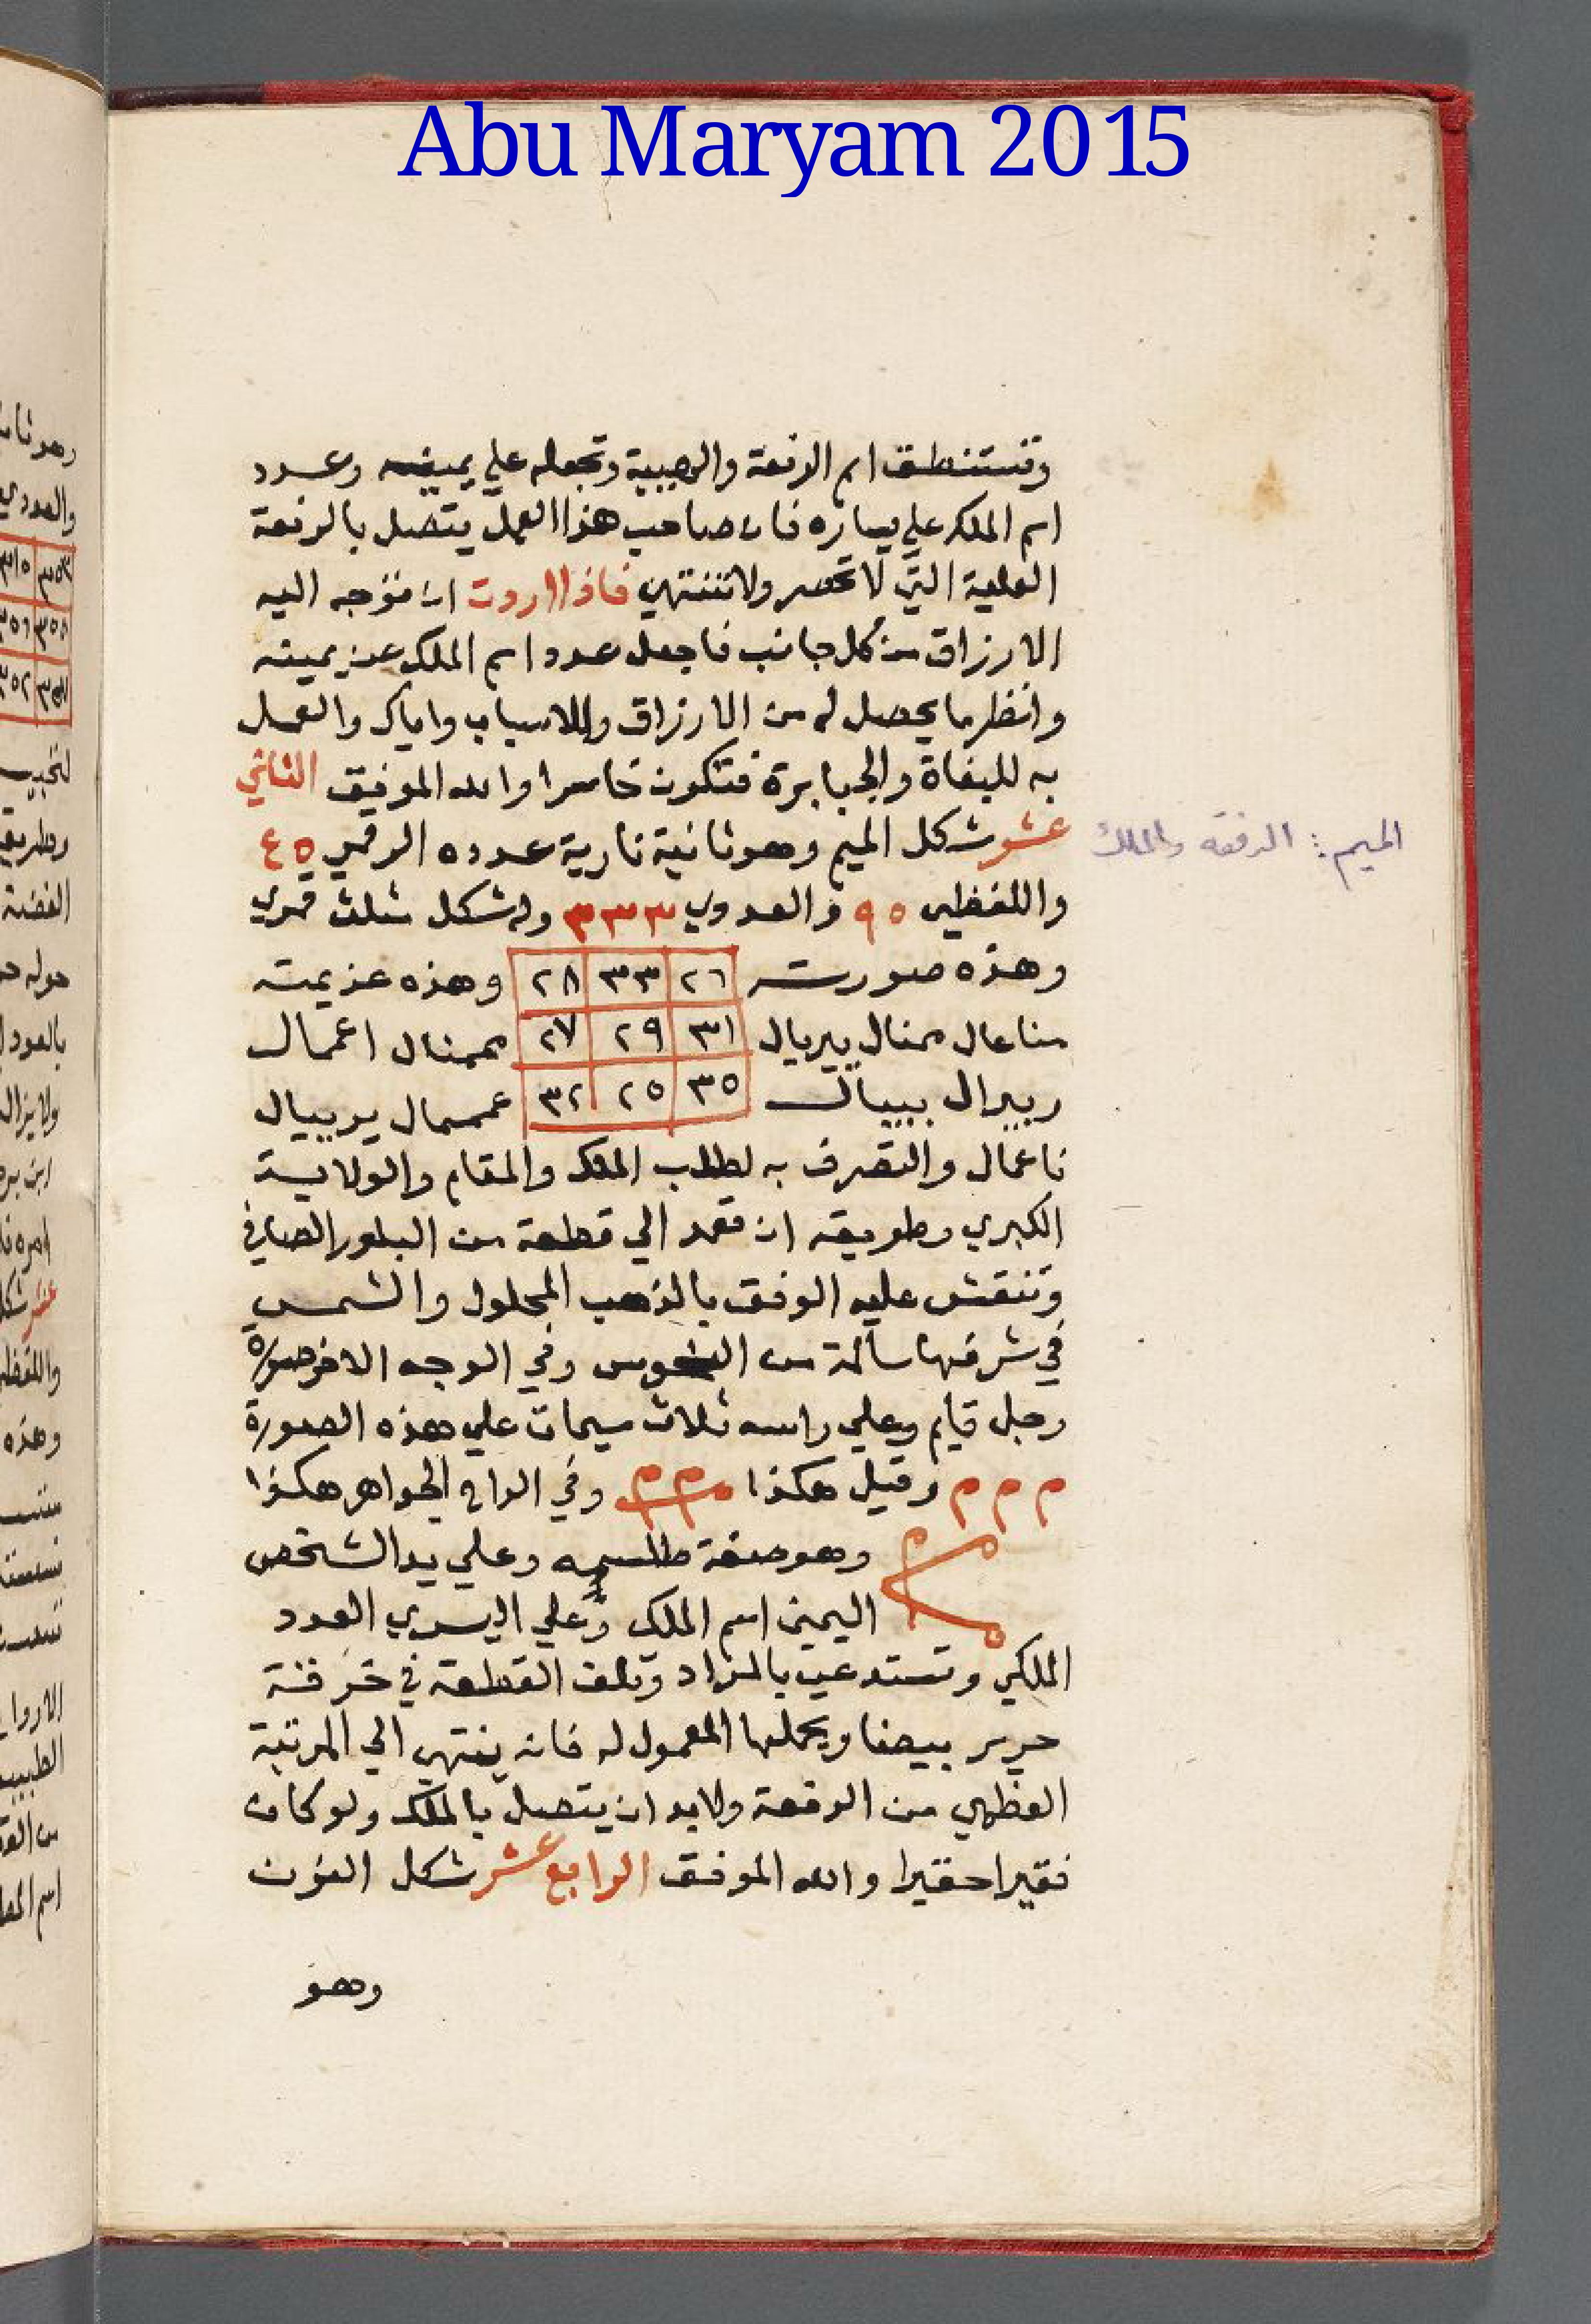 Abu Maryam 2015
وتستنطق اسم الرفعة والهيبة وتجعله علي يمينه وعدد
اسم الملك علي يساره فان صاحب هذا العمل يتصل بالرفعة
العلية التي لا تحصر ولا تنتهي فاذا اردت ان تتوجه اليه
الارزاق من كل جانب فاجعل عدد اسم الملك عن يمينه
وانظر ما يحصل له من الارزاق والاسباب واياك والعمل
به للبغاة والجبابرة فتكون خاسرا والله الموفق الثاني
عشر شكل الميم وهو ثانية نارية عدده الرقمي ٤٥
الميم: الرفعه والملك
واللفظي ٩٥ والعددي ٣٣٣ وله شكل مثلث قمري
وهذه صورت ٢٦ ٣٣ ٢٨ وهذه عزيمته
مناعال ممنال بيريال ٣١ ٢٩ ٢٧ ممنال اعمال
ربيرال بيبيال ٣٥ ٢٥ ٣٢ عمسمال يربيال
ناعمال والتصرف به لطلب الملك والمقام والولاية
الكبري وطريقه ان تعمد الي قطعة من البلور الصافي
وتنقش عليه الوفق بالذهب المحلول والشمس
في شرفها سالمة من النحوس وفي الوجه الاخر صورة
رجل قايم وعلي راسه ثلاث ميمات علي هذه الصورة
م م م وقيل هكذا وفي الواح الجواهر هكذا
وهو صفة طلسمه وعلي يد الشخص
اليمين اسم الملك وعلي اليسري العدد
الملكي وتستدعي بالمراد وتلف القطعة في خرقة
حرير بيضا ويحملها المعمول له فانه ينتهي الي المرتبة
العظمي من الرفعة ولا بد ان يتصل بالملك ولو كان
فقيرا حقيرا والله الموفق الرابع عشر شكل النون
وهو